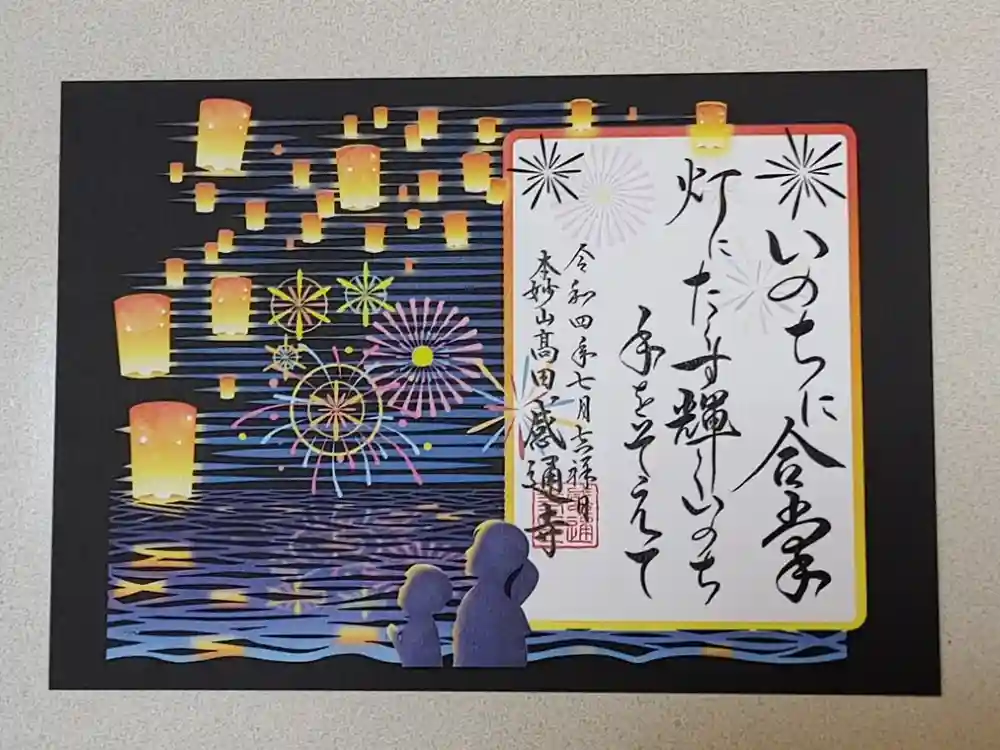 いのちに合掌
灯にたくす輝くいのち
手をそえて
令和四年七月吉祥日
本妙山高田感通寺